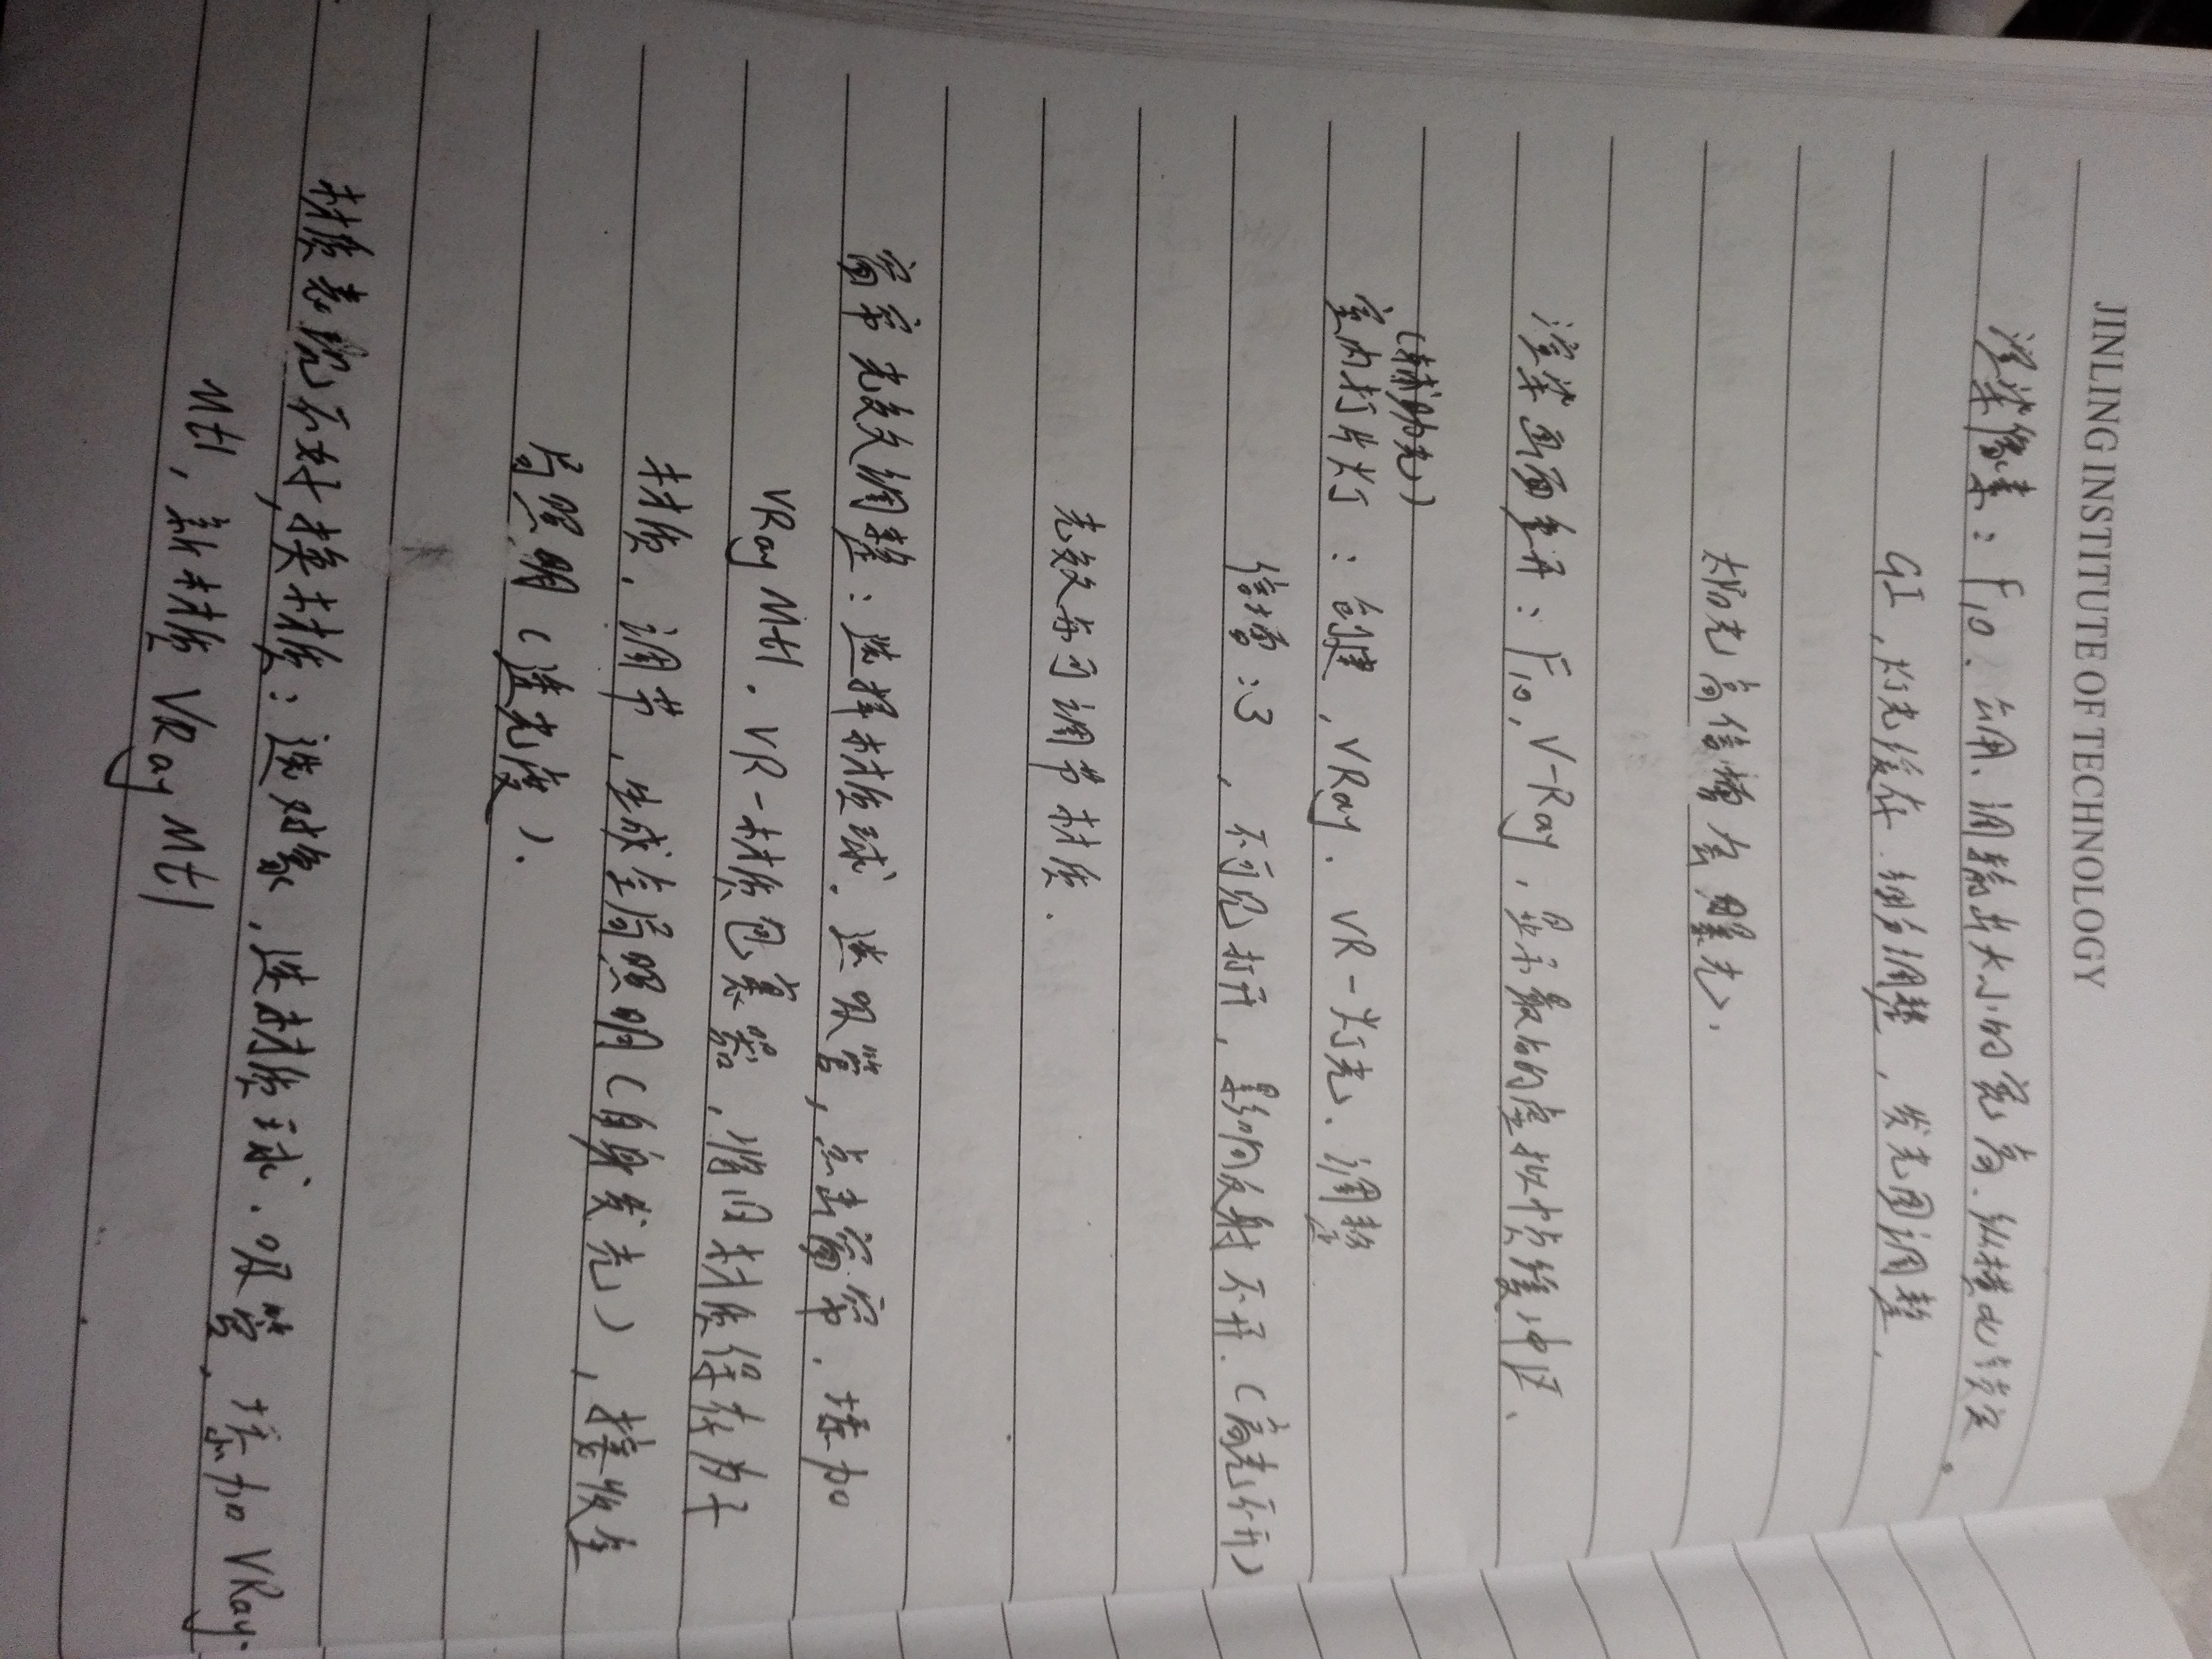 JINLING INSTITUTE OF TECHNOLOGY
渲染像素：F10、公用、调输出大小的宽高、纵横比
GI，灯光缓存.细分调整，发光图调整，
太阳光高倍增会曝光，
渲染画面全开：F10，V-Ray，显示最后的虚拟帧缓冲区、
（辅助光）
室内打片灯：创建，VRay．VR-灯光、调整
倍增：3，不可见打开，影响反射不开．（高光不开）
光效亦可调节材质．
窗帘光效调整：选择材质球．选吸管，点击窗帘．添加
VRay Mtl．VR-材质包裹器，将旧材质保存为子
材质，调节，生成全局照明（自身发光），接收全
局照明（透光度）．
材质表现不好，换材质：选对象，选材质球．吸管，添加VRay．
Mtl，新材质VRay Mtl